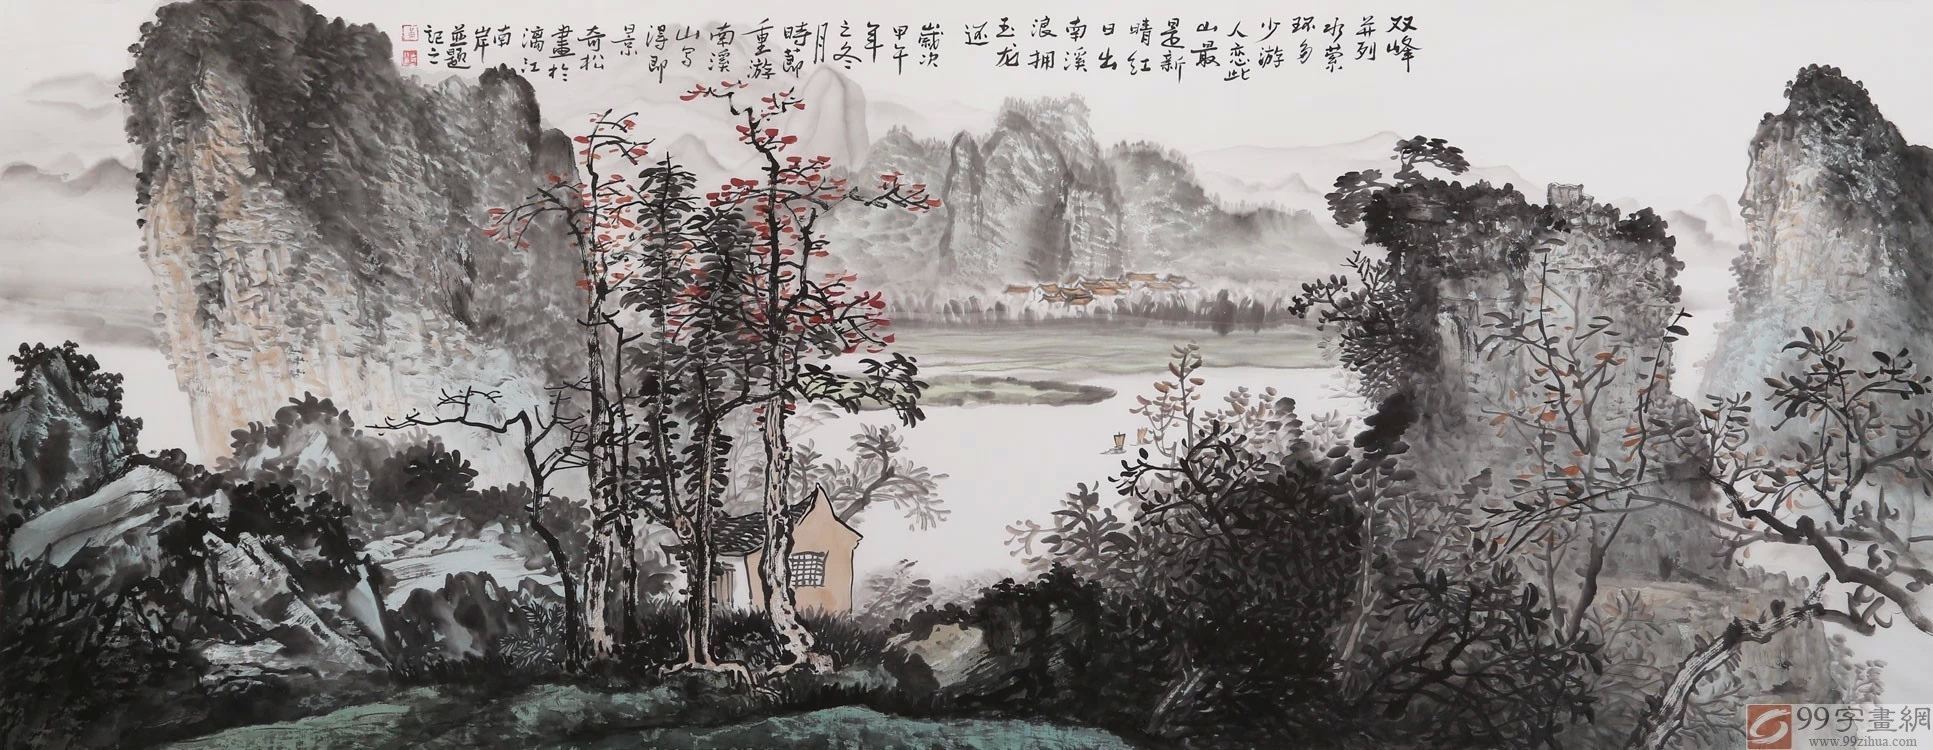 双峰
并列
水萦
环多
少游
人恋此
山最
是新
晴红
日出
南溪
浪拥
玉龙
还
岁次
甲午
年
之冬
月
时节
重游
南溪
山写
得即
景
奇松
畫於
漓江
南
岸
並題
記之
99字畫網
www.99zihua.com